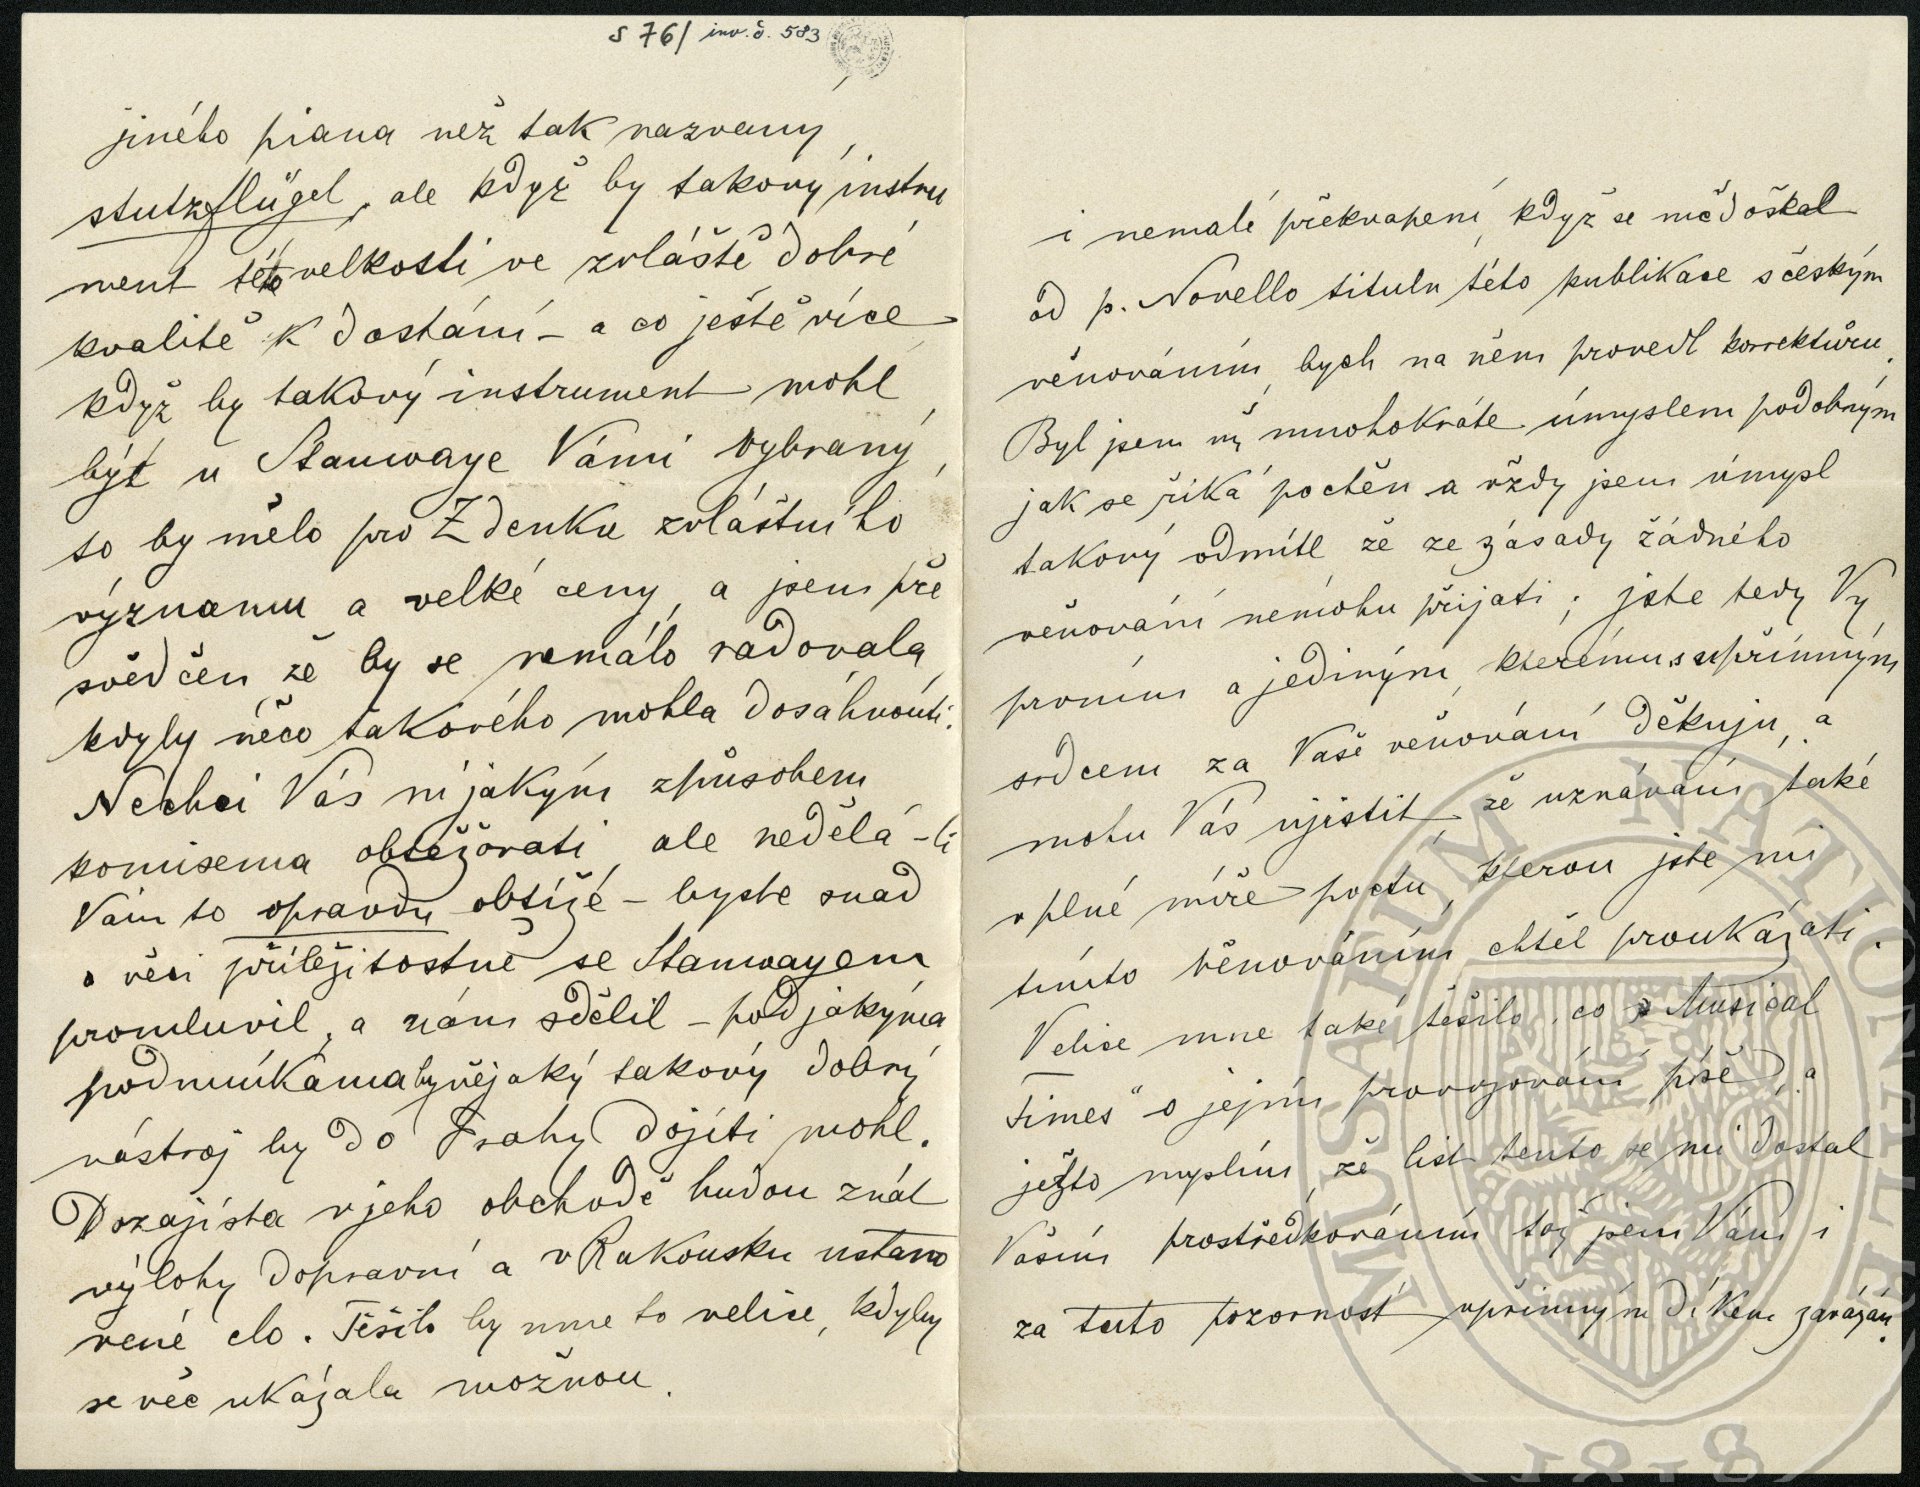 S 76/ inv. č. 583
jiného piana než tak nazvaný
stutzflügel, ale když by takový instru
ment této velkosti ve zvláště dobré
kvalitě k dostání – a co ještě více
když by takový instrument mohl
být u Stanwaye Vámi vybraný,
to by mělo pro Zdenku zvláštního
významu a velké ceny, a jsem pře
svědčen že by se nemálo radovala
kdyby něco takového mohla dosáhnouti.
Nechci Vás nijakým způsobem
komisema obtěžovati, ale nedělá-li
Vám to opravdu obtíže – byste snad
o věci příležitostně se Stanwayem
promluvil, a nám sdělil – pod jakýma
podmínkama by nějaký takový dobrý
nástroj by do Prahy dojíti mohl.
Dozajista v jeho obchodě budou znát
výlohy dopravní a v Rakousku ustano
vené clo. Těšilo by mne to velice, kdyby
se věc ukázala možnou.
i nemalé překvapení, když se mě doškal
od p. Novello titulu této publikace s českým
věnováním, bych na něm provedl korrektůru.
Byl jsem už mnohokráte úmyslem podobným
jak se říká poctěn a vždy jsem úmysl
takový odmítl že ze zásady žádného
věnování nemohu přijati; jste tedy Vy
prvním a jediným, kterému s upřímným
srdcem za Vaše věnování děkuju, a
mohu Vás ujistit, že uznávám také
v plné míře poctu, kterou jste mi
tímto věnováním chtěl proukázati.
Velice mne také těšilo, co „Musical
Times“ o jejím provozování píše, a
ježto myslím, že list tento se mi dostal
Vaším prostředkováním, toť jsem Vám i
za tuto pozornost upřímným díkem zavázán.
MUSAEUM NATIONALE
1818